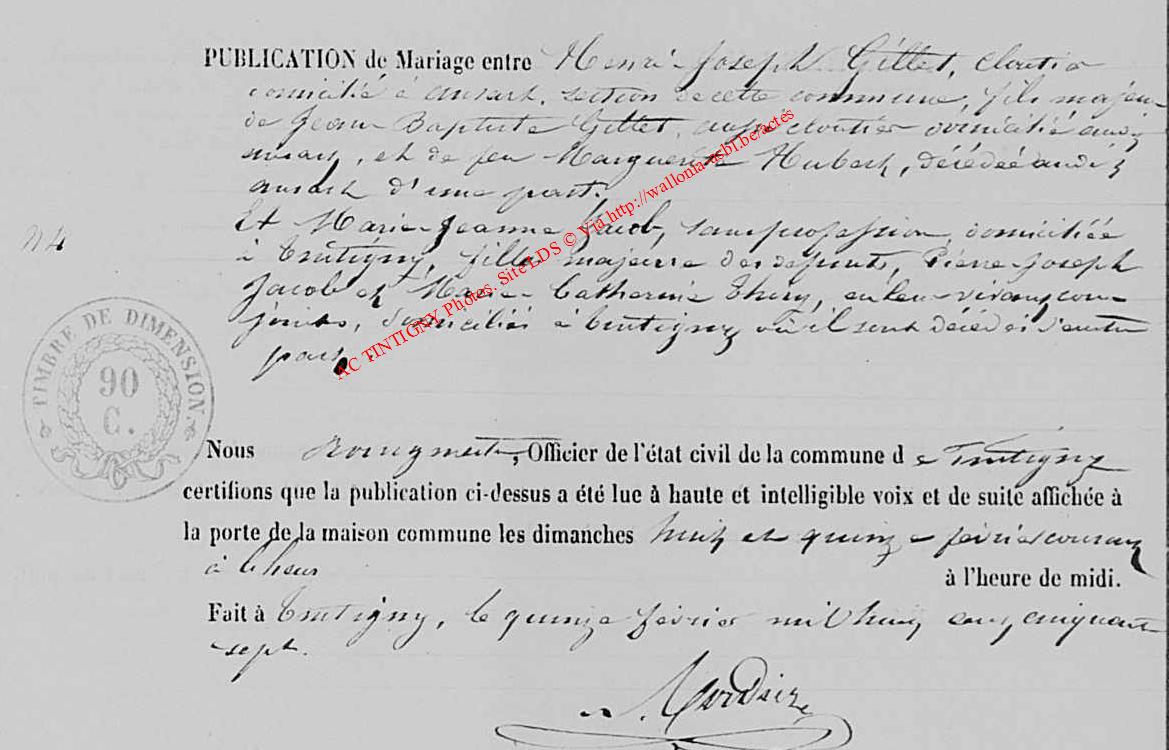 PUBLICATION de Mariage entre Henri-Joseph Gillet, cloutier
domicilié à ansart, section de cette commune, fils majeur
de Jean Baptiste Gillet, aussi cloutier domicilié audit
ansart, et de feu Marguerite Hubert, décédée audit
ansart d'une part.
Et Marie-Jeanne Jacob, sans profession, domiciliée
à Tintigny, fille majeure des défunts, Pierre-Joseph
Jacob et Marie-Catherine Thiry, en leur vivant con-
joints, domiciliés à tintigny où il sont décédés d'autre
part.
N 4
TIMBRE DE DIMENSION.
90
C.
Nous Bourgmestre, Officier de l'état civil de la commune de Tintigny
certifions que la publication ci-dessus a été lue à haute et intelligible voix et de suite affichée à
la porte de la maison commune les dimanches huit et quinze février courant
à l'heure
à l'heure de midi.
Fait à Tintigny, le quinze février mil huit cent cinquante
sept.
AC TINTIGNY Photos. Site LDS © Via http://wallonia-asbl.be/actes